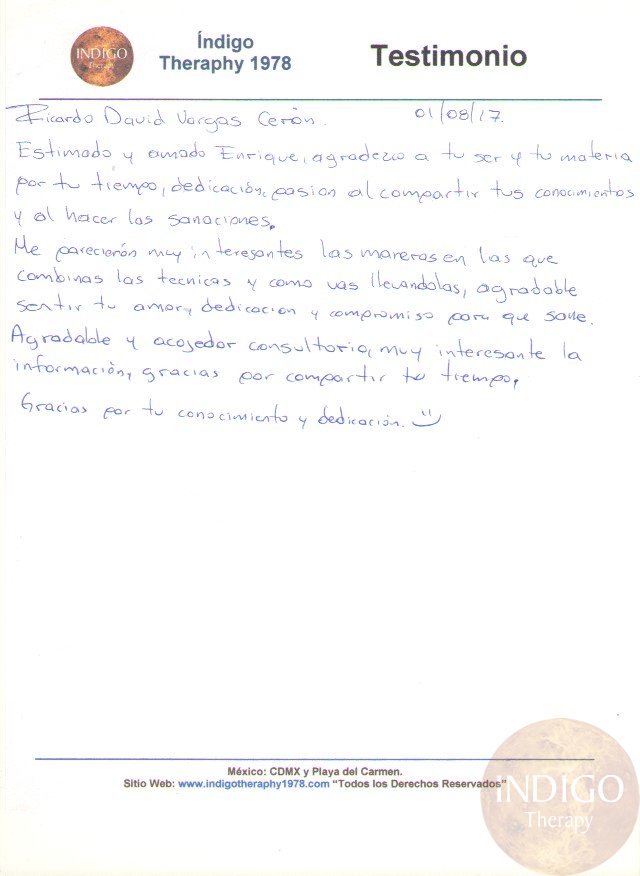 INDIGO
Therapy
Índigo
Theraphy 1978
Testimonio
Ricardo David Vargas Cerón.
01/08/17.
Estimado y amado Enrique, agradezco a tu ser y tu materia
por tu tiempo, dedicación, pasion al compartir tus conocimientos
y al hacer las sanaciones.
Me parecierón muy interesantes las maneras en las que
combinas las tecnicas y como vas llevandolas, agradable
sentir tu amor, dedicacion y compromiso para que sane.
Agradable y acojedor consultorio, muy interesante la
información, gracias por compartir tu tiempo,
Gracias por tu conocimiento y dedicación.
México: CDMX y Playa del Carmen.
Sitio Web: www.indigotheraphy1978.com “Todos los Derechos Reservados”
INDIGO
Therapy